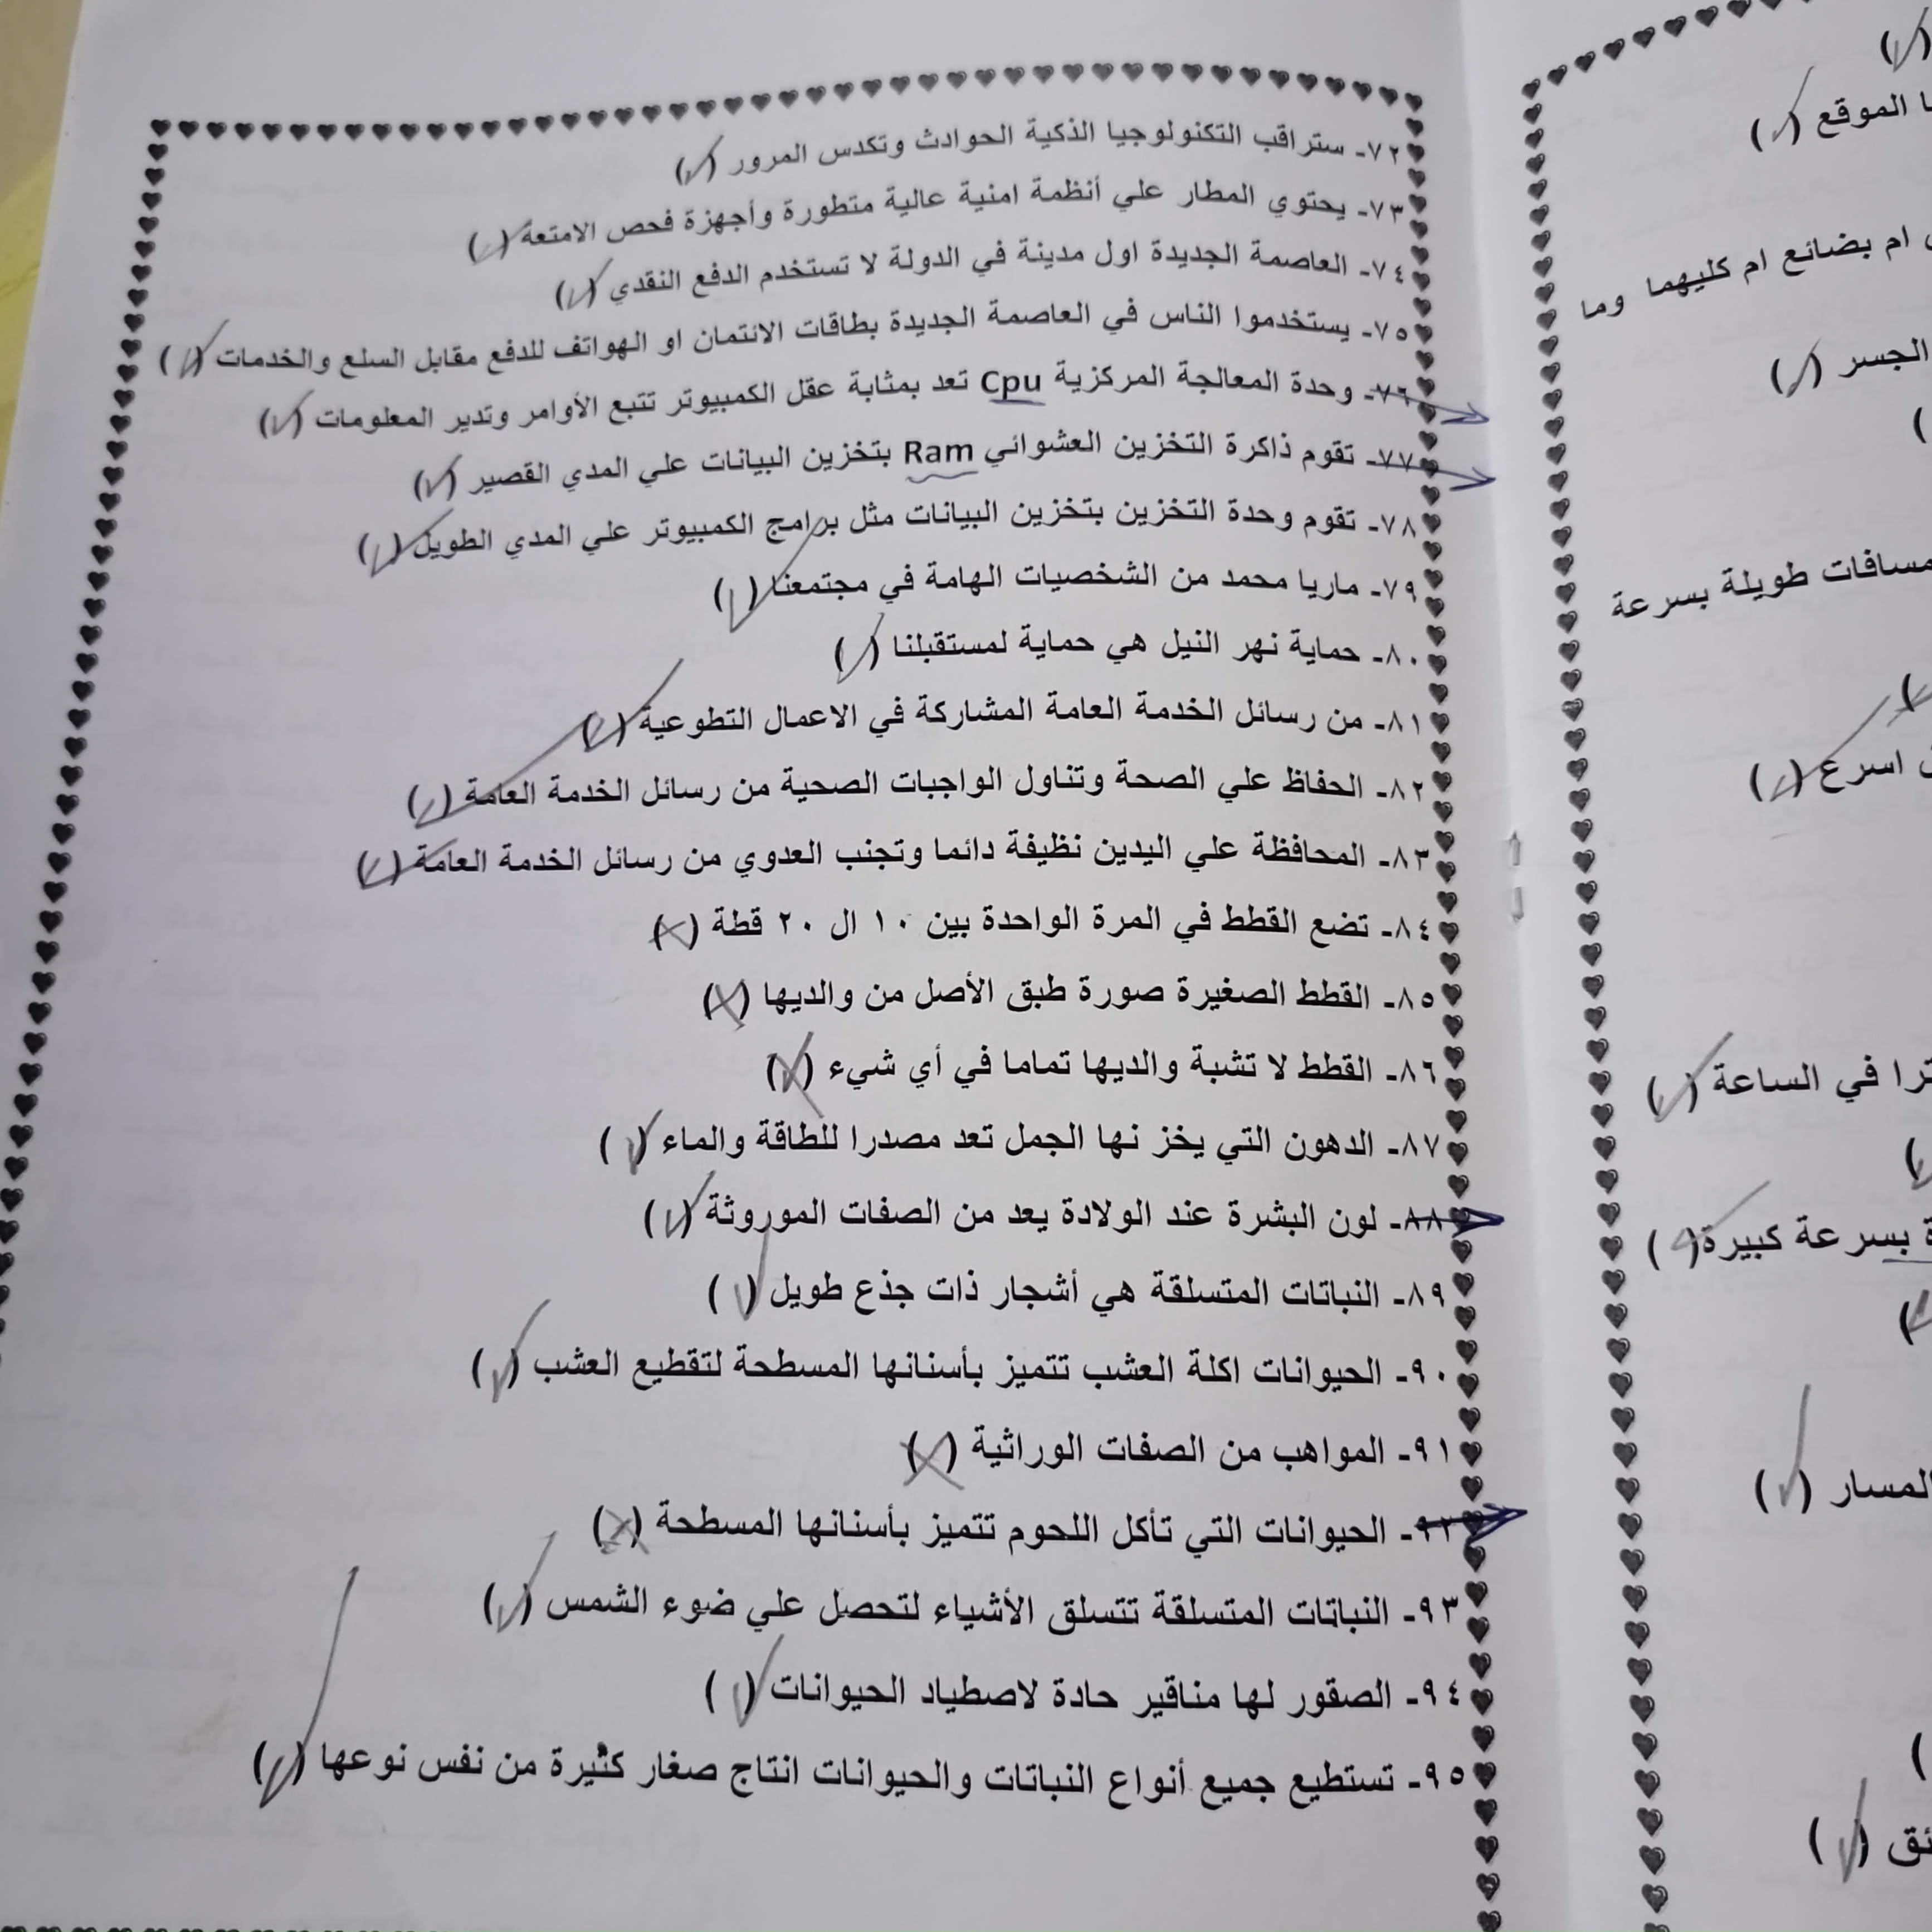 ٧٢- ستراقب التكنولوجيا الذكية الحوادث وتكدس المرور (✓)
٧٣- يحتوي المطار علي أنظمة امنية عالية متطورة وأجهزة فحص الامتعة (✓)
٧٤- العاصمة الجديدة اول مدينة في الدولة لا تستخدم الدفع النقدي (✓)
٧٥- يستخدموا الناس في العاصمة الجديدة بطاقات الائتمان او الهواتف للدفع مقابل السلع والخدمات (✓)
٧٦- وحدة المعالجة المركزية Cpu تعد بمثابة عقل الكمبيوتر تتبع الأوامر وتدير المعلومات (✓)
٧٧- تقوم ذاكرة التخزين العشوائي Ram بتخزين البيانات علي المدي القصير (✓)
٧٨- تقوم وحدة التخزين بتخزين البيانات مثل برامج الكمبيوتر علي المدي الطويل (✓)
٧٩- ماريا محمد من الشخصيات الهامة في مجتمعنا (✓)
٨٠- حماية نهر النيل هي حماية لمستقبلنا (✓)
٨١- من رسائل الخدمة العامة المشاركة في الاعمال التطوعية (✓)
٨٢- الحفاظ علي الصحة وتناول الواجبات الصحية من رسائل الخدمة العامة (✓)
٨٣- المحافظة علي اليدين نظيفة دائما وتجنب العدوي من رسائل الخدمة العامة (✓)
٨٤- تضع القطط في المرة الواحدة بين ١٠ ال ٢٠ قطة (×)
٨٥- القطط الصغيرة صورة طبق الأصل من والديها (×)
٨٦- القطط لا تشبة والديها تماما في أي شيء (×)
٨٧- الدهون التي يخز نها الجمل تعد مصدرا للطاقة والماء (✓)
٨٨- لون البشرة عند الولادة يعد من الصفات الموروثة (✓)
٨٩- النباتات المتسلقة هي أشجار ذات جذع طويل (✓)
٩٠- الحيوانات اكلة العشب تتميز بأسنانها المسطحة لتقطيع العشب (✓)
٩١- المواهب من الصفات الوراثية (×)
٩٢- الحيوانات التي تأكل اللحوم تتميز بأسنانها المسطحة (×)
٩٣- النباتات المتسلقة تتسلق الأشياء لتحصل علي ضوء الشمس (✓)
٩٤- الصقور لها مناقير حادة لاصطياد الحيوانات (✓)
٩٥- تستطيع جميع أنواع النباتات والحيوانات انتاج صغار كثيرة من نفس نوعها (✓)
(✓)
الموقع (✓)
ام بضائع ام كليهما وما
الجسر (✓)
مسافات طويلة بسرعة
اسرع (✓)
في الساعة (✓)
بسرعة كبيرة (✓)
المسار (✓)
(✓)